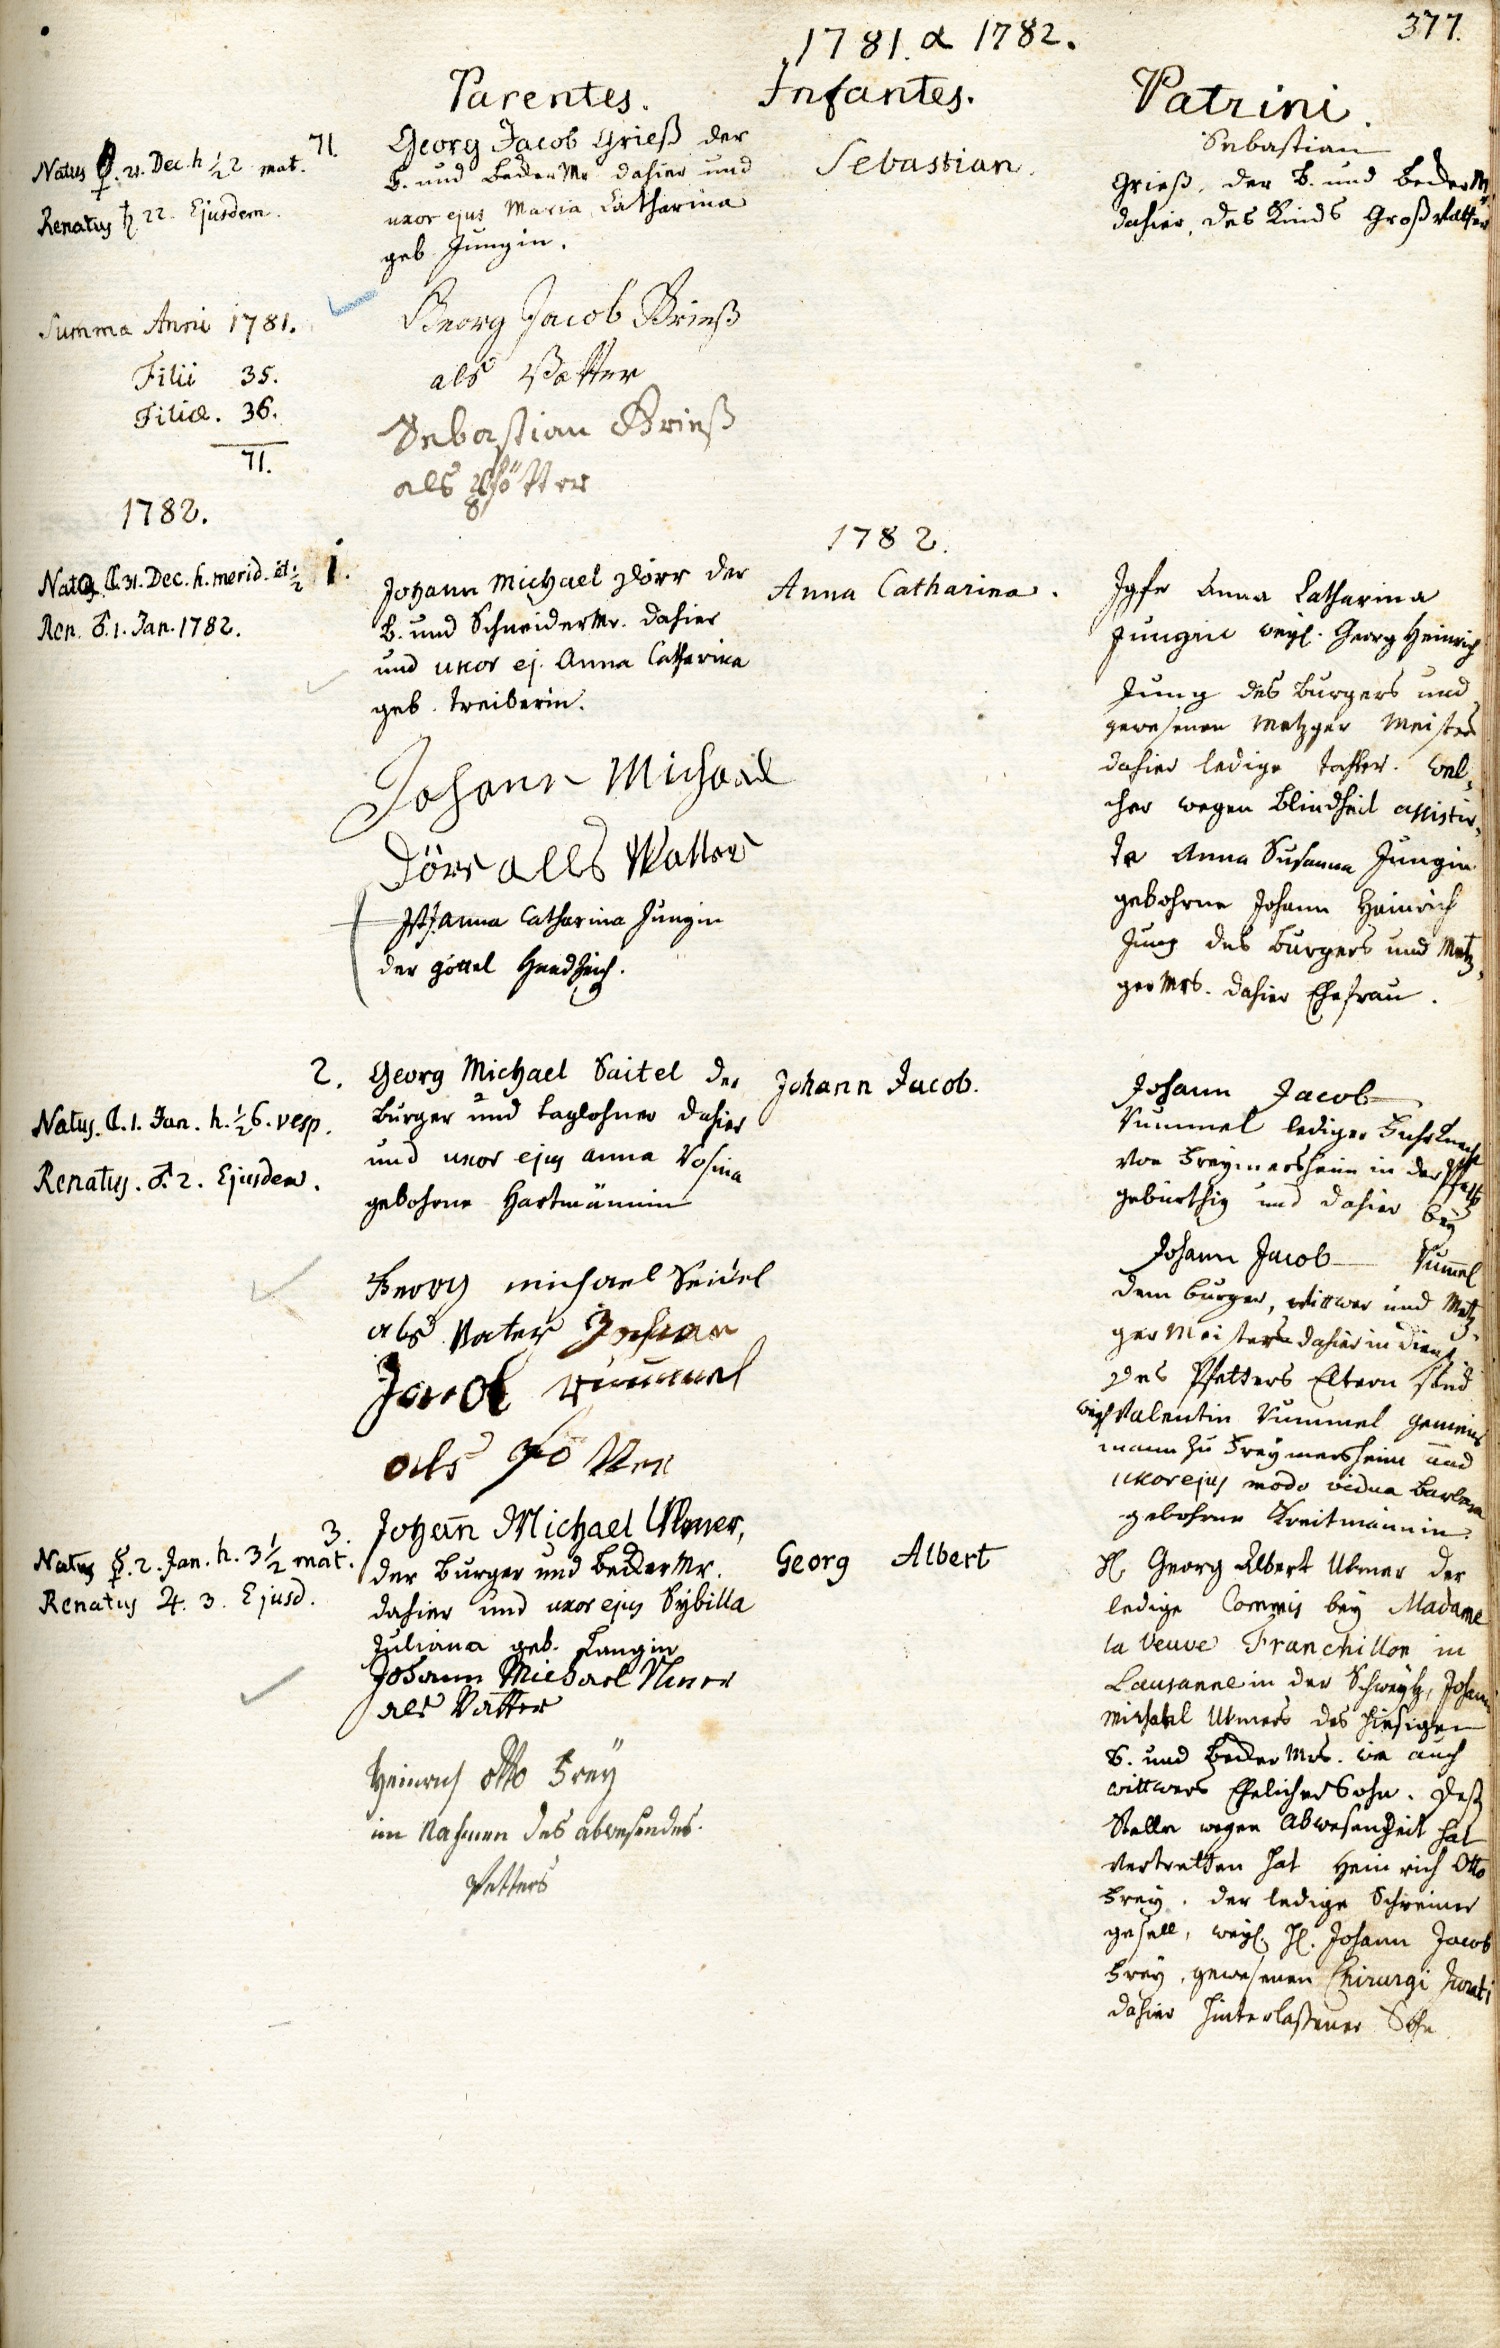 377.
1781. & 1782.
Parentes. Infantes. Patrini.
Natus ♀. 21. Dec. h. ½2 mat.
Renatus ♄. 22. Ejusdem.
71.
Georg Jacob Grieß der
B. und Becker Mr. dahier und
uxor ejus Maria Catharina
geb. Jungin.
Sebastian.
Sebastian
Grieß, der B. und Becker Mr.
dahier, des Kinds Großvatter
Georg Jacob Grieß
als Vatter
Sebastian Grieß
als
Summa Anni 1781.
Filii 35.
Filiæ. 36.
71.
1782.
1782.
Nata ☾. 31. Dec. h. merid. et ½
Ren. ♂. 1. Jan. 1782.
1.
Johann Michael Dörr der
B. und Schneider Mr. dahier
und uxor ej. Anna Catharina
geb. Treiberin.
Johann Michael
Dörr alls Vatter
Anna Catharina Jungin
der göttel Handzeich.
Anna Catharina.
Jgfr Anna Catharina
Jungin weyl. Georg Heinrich
Jung des Burgers und
gewesenen Metzger Meisters
dahier ledige Tochter. Wel,
cher wegen Blindheit assistir,
te Anna Susanna Jungin
gebohrne Johann Heinrich
Jung des Burgers und Metz,
ger Mrs. dahier Ehefrau.
2.
Natus. ☾. 1. Jan. h. ½6. vesp.
Renatus. ♂. 2. Ejusdem.
Georg Michael Saitel der
Burger und Taglohner dahier
und uxor ejus Anna Rosina
gebohrne Hartmännin
Georg michael Seidel
als Vater Johan
Jacob Rummel
als
Johann Jacob.
Johann Jacob
Rummel lediger Fuhrknecht
von Freymersheim in der Pfaltz
gebürthig und dahier bey
Johann Jacob Rummel
dem Burger, Wittwer und Metz,
ger Meister dahier in Dienst
Des Pfetters Eltern sind
weyl Valentin Rummel Gemeins
mann zu Freymersheim und
uxor ejus modo vidua Barbara
gebohrne Kreitmännin.
3.
Natus ☿. 2. Jan. h. 3½ mat.
Renatus ♃. 3. Ejusd.
Johann Michael Ulmer,
der Burger und Becker Mr.
dahier und uxor ejus Sybilla
Juliana geb. Langin
Johann Michael Ulmer
als Vatter
Heinrich Otto Frey
im Nahmen des abwesendes.
Petters
Georg Albert
H. Georg Albert Ulmer der
ledige Commis bey Madame
la Veuve Franchillon in
Lausanne in der Schweytz, Johann
Michael Ulmers des hiesigen
B. und Becker Mrs. wie auch
Wittwers Ehelicher Sohn. Deß
Stelle wegen Abwesenheit hat
vertretten hat Heinrich Otto
Frey, der ledige Schreiner
gesell, weyl. H. Johann Jacob
Frey, gewesenen Chirurgi Jurati
dahier hinterlaßener Sohn